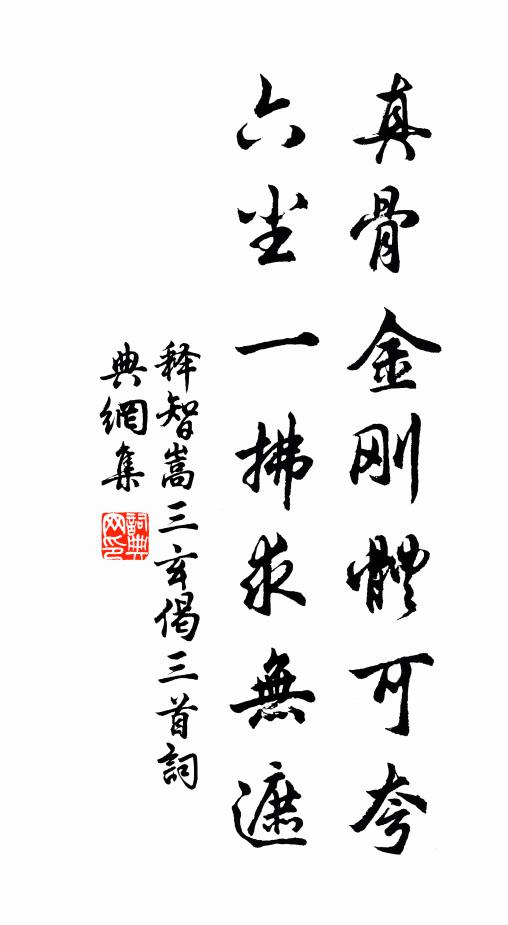 真骨金刚體可夸
六尘一拂求無遮
释智嵩三玄偈三首詞
典網集
詞典网印